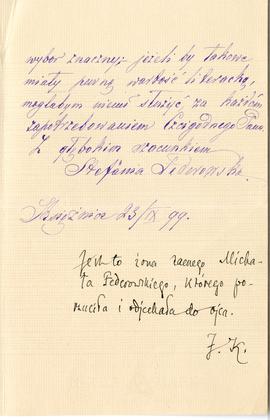 wybór znaczny; jeżeli by takowe
miały pewną wartość literacką,
mogłabym niemi służyć za każdem
zapotrzebowaniem Czcigodnego Pana.
Z głębokim szacunkiem
Stefania Federowska.
23/IX 99.
Jest to żona znanego Micha-
ła Federowskiego, którego po-
rzuciła i odjechała do ojca.
J. K.